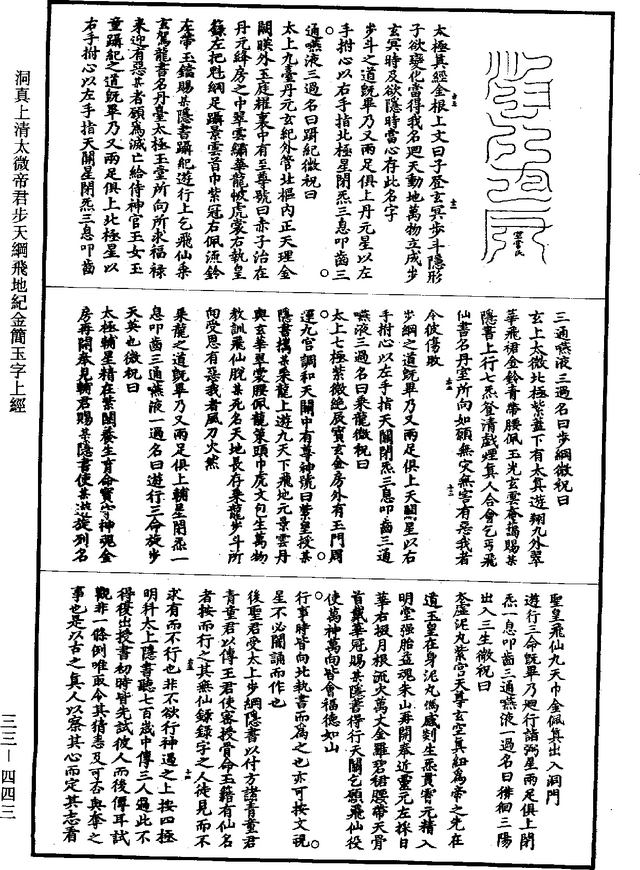 太極真經金根上文曰子登玄冥步斗隱形
子欲變化當得我名迴天動地萬物立成步
玄冥時及欲隱時當心存此名字
步斗之道既畢乃又兩足俱上丹元星以左
手拊心以右手指北極星閉炁三息叩齒三
通嚥液三過名曰躡紀微祝曰
太上九臺丹元玄紀外管北樞內正天理金
闕映外玉庭羅裏中有至尊號曰赤子治在
丹元絳房之中翠雲繡華龍帔虎裳右執皇
籙左把尅綱足躡景雲首巾紫冠右佩流鈴
左帶玉鐺賜某隱書躡紀遊行上乞飛仙乘
玄駕龍書名丹臺太極玉堂所向所求福祿
來迎有惡某者願為滅亡給侍神官玉女玉
童躡紀之道既畢乃又兩足俱上北極星以
右手拊心以左手指天關星閉炁三息叩齒
三通嚥液三過名曰步綱微祝曰
玄上太微北極紫蓋下有太真遊翔九外翠
華飛裙金鈴青帶腰佩玉光玄雲奄藹賜某
隱書上行七炁登清戲煙真人合會乞丐飛
仙書名丹室所向如願無灾無害有惡我者
令彼傷敗
步綱之道既畢乃又兩足俱上天關星以右
手拊心以左手指天關閉炁三息叩齒三通
嚥液三過名曰乘龍微祝曰
太上七極紫微絕辰寶玄金房外有玉門周
運九宮調和天關中有尊神號曰業皇授某
隱書攜某乘龍上遊九天下飛地元景雲丹
輿玄華翠裳腰佩龍策頭巾虎文包生萬物
教訓飛仙脫某死名天地長存乘龍步斗所
向受恩有惡我者風刀火然
乘龍之道既畢乃又兩足俱上輔星閉炁一
息叩齒三通嚥液一過名曰遊行三命旋步
天英也微祝曰
太極輔星精在紫關養生育命寶守神魂金
房再開奉見輔君賜某隱書使某遊旋列名
聖皇飛仙九天巾金佩真出入洞門
遊行三命既畢乃迴行詣弼星兩足俱上閉
炁一息叩齒三通嚥液一過名曰徘徊三陽
出入三生微祝曰
太虛泥丸紫宮天尊玄空真紐為帝之先在
道玉皇在身泥丸馮威剡生炁貫霄元精入
明堂強胎益魂朱山再開奉近靈元左採日
華右掇月根流火萬丈金羅碧裙腰帶天骨
首戴華冠賜某隱書得行天關乞願飛仙役
使萬神萬向皆會福德如山
行事時皆向北執書而為之也亦可按文視
星不必闇誦而作也
後聖君受太上步綱隱書以付方諸青童君
青童君以傳王君使密授骨命玉籍有仙名
者按而行之其無仙錄錄字之人徒見而不
求有而不行也非不欲行神遏之上按四極
明科太上隱書聽七百歲中傳三人過此不
得復出授書初時皆先試彼人而後傳耳試
觀非一條例唯取令其猜惠及可否與奪之
事也是以古之真人以察其心而定其志看
洞真上清太微帝君步天綱飛地紀金簡玉字上經
三三—四四三